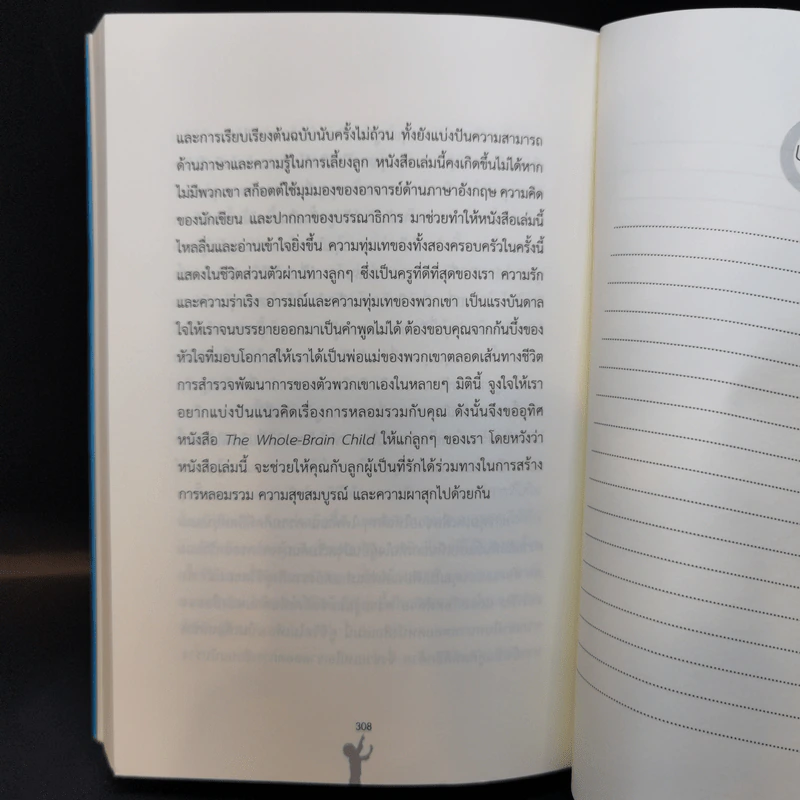 และการเรียบเรียงต้นฉบับนับครั้งไม่ถ้วน ทั้งยังแบ่งปันความสามารถ
ด้านภาษาและความรู้ในการเลี้ยงลูก หนังสือเล่มนี้คงเกิดขึ้นไม่ได้หาก
ไม่มีพวกเขา สก็อตต์ใช้มุมมองของอาจารย์ด้านภาษาอังกฤษ ความคิด
ของนักเขียน และปากกาของบรรณาธิการ มาช่วยทำให้หนังสือเล่มนี้
ไหลลื่นและอ่านเข้าใจยิ่งขึ้น ความทุ่มเทของทั้งสองครอบครัวในครั้งนี้
แสดงในชีวิตส่วนตัวผ่านทางลูกๆ ซึ่งเป็นครูที่ดีที่สุดของเรา ความรัก
และความร่าเริง อารมณ์และความทุ่มเทของพวกเขา เป็นแรงบันดาล
ใจให้เราจนบรรยายออกมาเป็นคำพูดไม่ได้ ต้องขอบคุณจากก้นบึ้งของ
หัวใจที่มอบโอกาสให้เราได้เป็นพ่อแม่ของพวกเขาตลอดเส้นทางชีวิต
การสำรวจพัฒนาการของตัวพวกเขาเองในหลายๆ มิตินี้ จูงใจให้เรา
อยากแบ่งปันแนวคิดเรื่องการหลอมรวมกับคุณ ดังนั้นจึงขออุทิศ
หนังสือ The Whole-Brain Child ให้แก่ลูกๆ ของเรา โดยหวังว่า
หนังสือเล่มนี้ จะช่วยให้คุณกับลูกผู้เป็นที่รักได้ร่วมทางในการสร้าง
การหลอมรวม ความสุขสมบูรณ์ และความผาสุกไปด้วยกัน
308